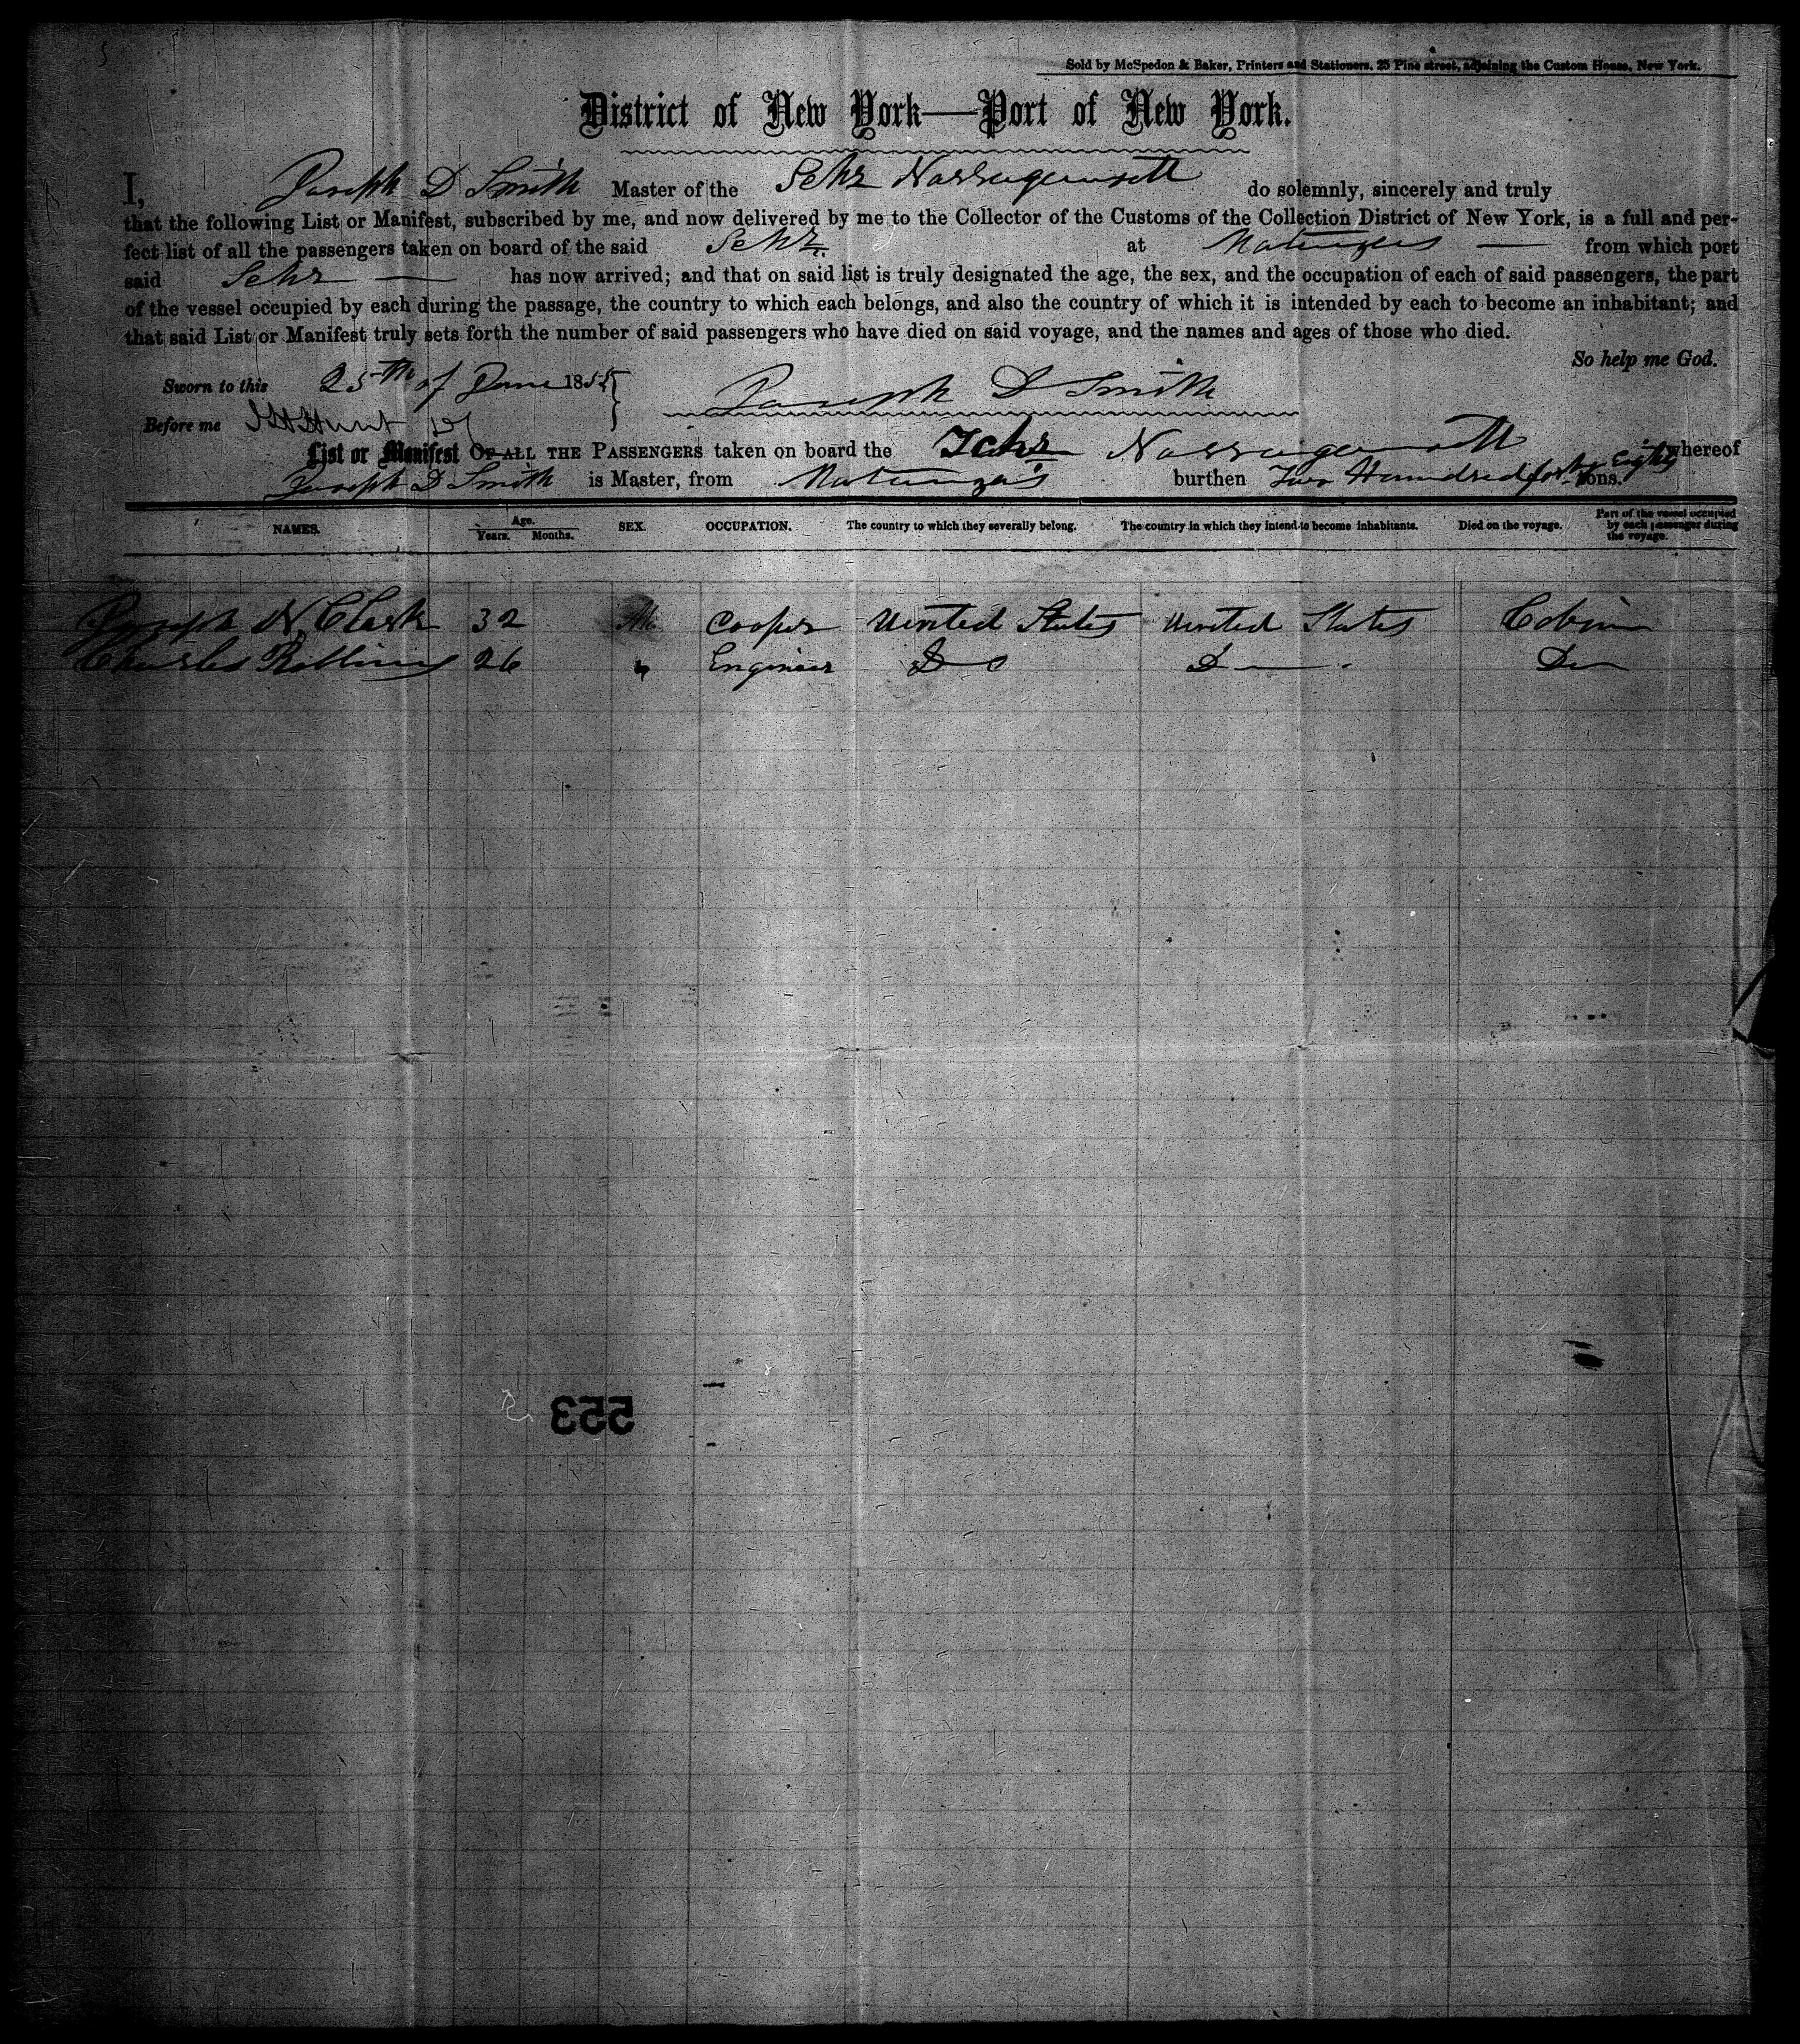 Sold by McSpedon & Baker, Printers and Stationers, 25 Pine street, adjoining the Custom House, New York.
District of New York—Port of New York.
I, Joseph D Smith Master of the Schr Narragansett do solemnly, sincerely and truly
that the following List or Manifest, subscribed by me, and now delivered by me to the Collector of the Customs of the Collection District of New York, is a full and per-
fect list of all the passengers taken on board of the said Schr. at Matanzas — from which port
said Schr — has now arrived; and that on said list is truly designated the age, the sex, and the occupation of each of said passengers, the part
of the vessel occupied by each during the passage, the country to which each belongs, and also the country of which it is intended by each to become an inhabitant; and
that said List or Manifest truly sets forth the number of said passengers who have died on said voyage, and the names and ages of those who died.
So help me God.
Sworn to this 25th of June 185 Joseph D Smith
Before me
List or Manifest OF ALL THE PASSENGERS taken on board the Schr Narragansett whereof
Joseph D Smith is Master, from Matanzas burthen Two Hundred forty Eight tons.
NAMES. Age. Years. Months. SEX. OCCUPATION. The country to which they severally belong. The country in which they intend to become inhabitants. Died on the voyage. Part of the vessel occupied by each passenger during the voyage.
Joseph N Clark 32 Ma Cooper United States United States Cabin
Charles 26 " Engineer Do Do Do
553